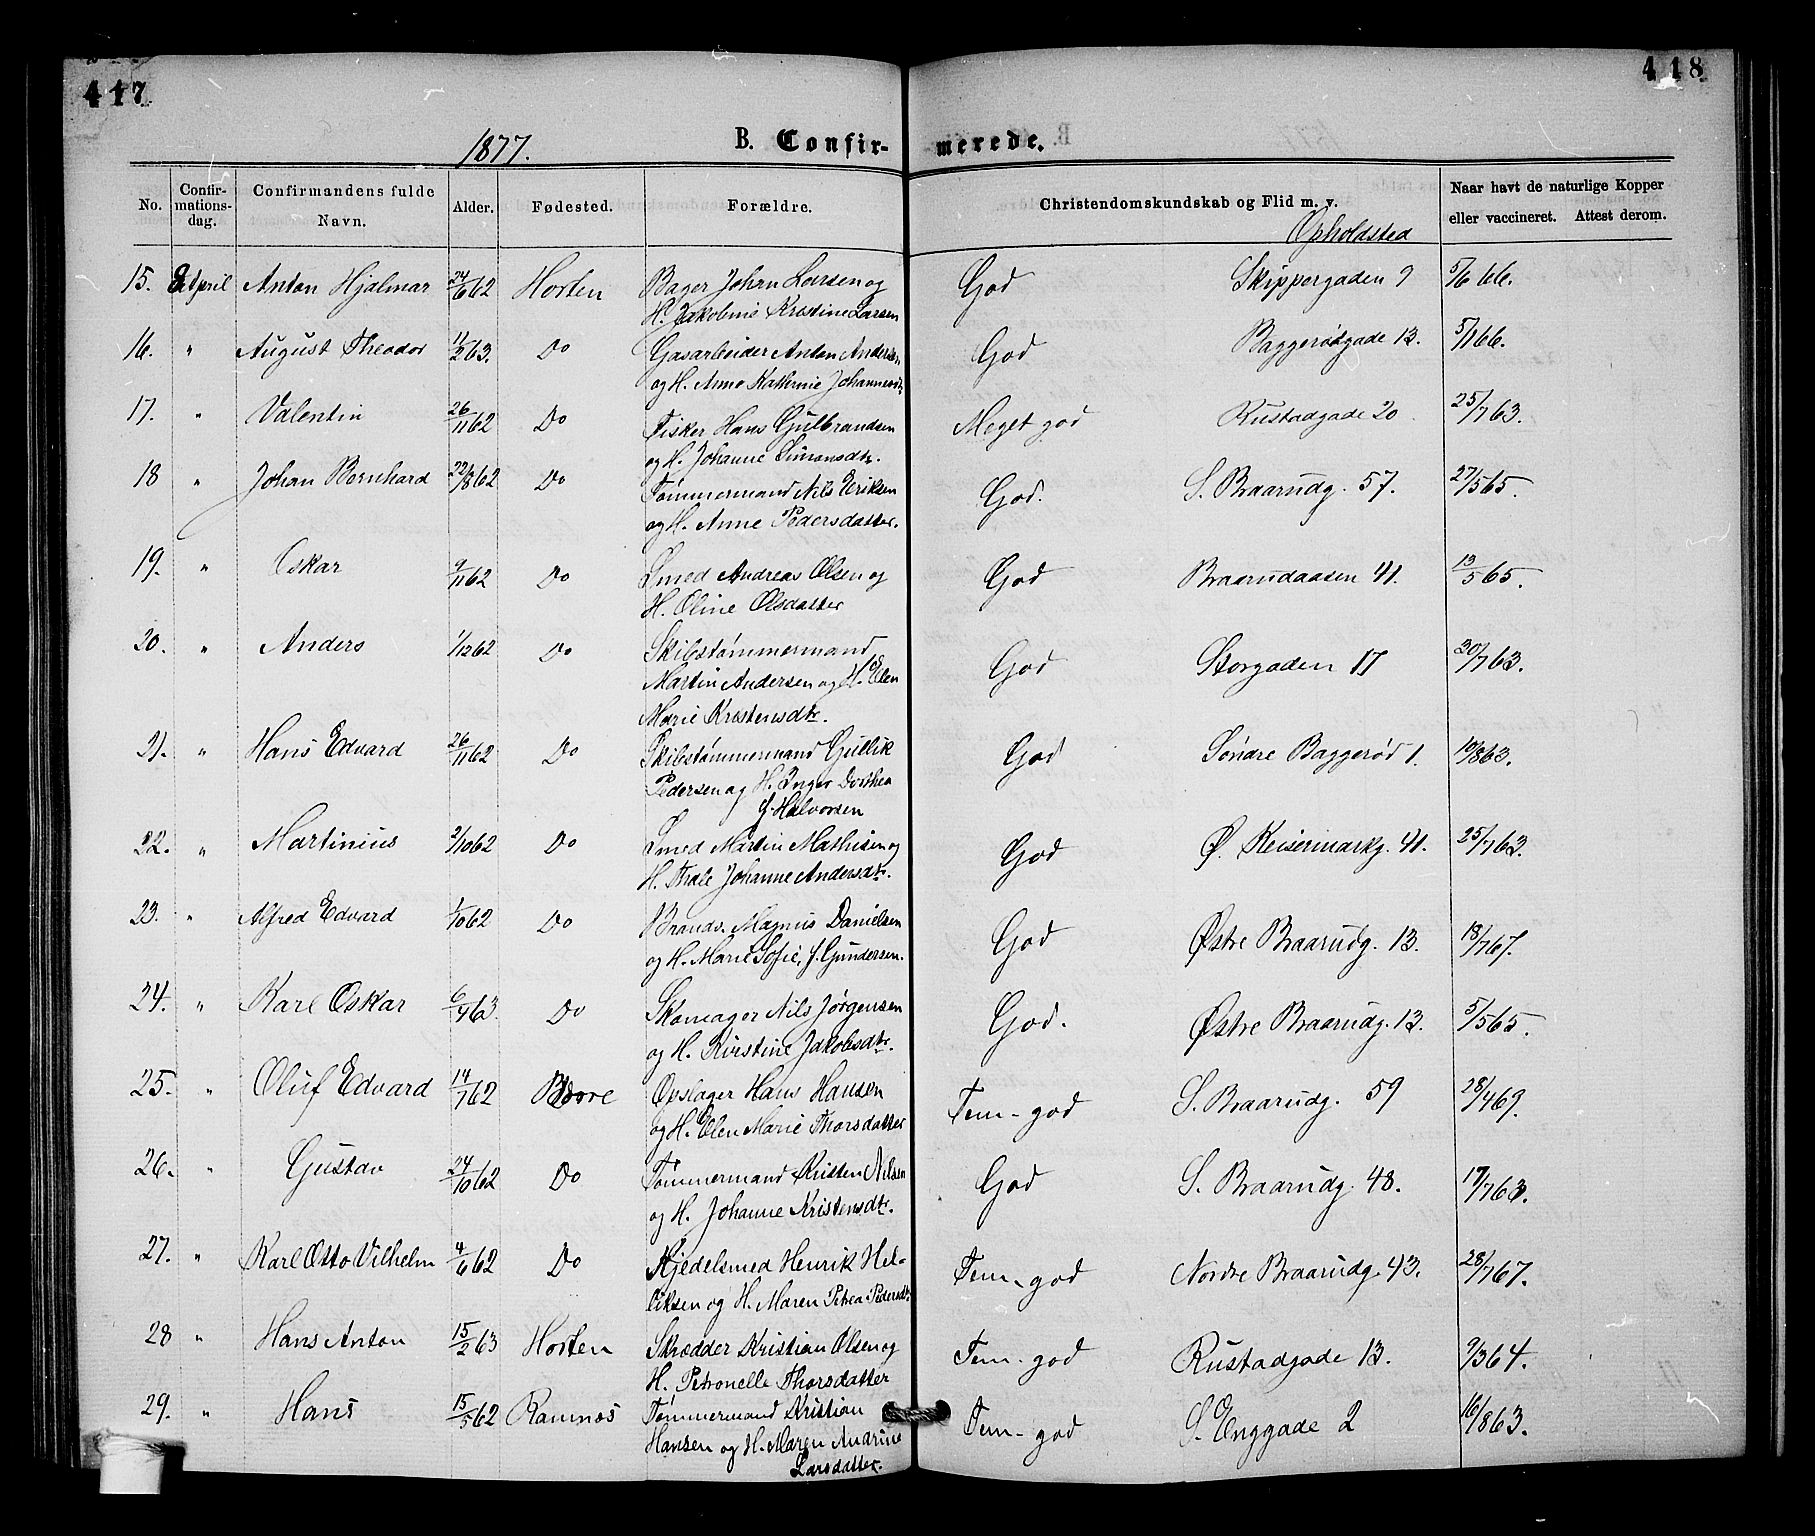 417
418
1877.
B. Confir-
merede.
No.
Confir-
mations-
dag.
Confirmandens fulde
Navn.
Alder.
Fødested.
Forældre.
Christendomskundskab og Flid m. v.
Opholdsted
Naar havt de naturlige Kopper
eller vaccineret. Attest derom.
15. 8 April Anton Hjalmar 24/6 62 Horten Bager Johan Larsen og God Skippergaden 9 5/6 66.
H. Jakobine Kristine Larsen
16. " August Theodor 11/2 63. Do Gasarbeider Anton Andersen God Baggerødgade 13. 5/1 66.
og H. Anne Kathrine Johannesdtr
17. " Valentin 26/11 62 Do Fisker Hans Gulbrandsen Meget god Rustadgade 20 25/7 63.
og H. Johanne Simonsdtr.
18 " Johan Bernhard 22/8 62 Do Tømmermand Nils Eriksen God. S. Braarudg. 57. 27/5 65.
og H. Anne Pedersdatter.
19. " Oskar 9/11 62 Do Smed Andreas Olsen og God Braarudaasen 41. 13/5 65.
H. Oline Olsdatter
20. " Anders 1/12 62 Do Skibstømmermand God Storgaden 17 30/7 63.
Martin Andersen og H. Elen
Marie Kristensdtr.
21. " Hans Edvard 26/11 62 Do Skibstømmermand Gullik God Søndre Baggerød 1. 10/8 63.
Pedersen og H. Inger Dorthea
f. Halvorsen
22. " Martinius 2/10 62 Do Smed Martin Mathisen og God Ø. Keisermarkg. 41. 25/7 63.
H. Thale Johanne Andersdtr.
23. " Alfred Edvard 1/10 62 Do Brands. Magnus Danielsen God Østre Braarudg. 13. 18/7 67.
og H. Marie Sofie, f. Gundersen.
24. " Karl Oskar 6/4 63. Do Skomager Nils Jørgensen God. Østre Braarudg. 13. 5/5 65.
og H. Kirstine Jakobsdtr.
25. " Oluf Edvard 14/7 62 Borre Opslager Hans Hansen Tem-god S. Braarudg. 59 28/4 69.
og H. Elen Marie Thorsdatter
26. " Gustav 24/10 62 Do Tømmermand Kristen Nilsen God S. Braarudg. 48. 17/7 63.
og H. Johanne Kristensdtr.
27. " Karl Otto Vilhelm 4/6 62 Do Kjedelsmed Henrik Hel- Tem-god Nordre Braarudg. 43. 28/7 67.
liksen og H. Maren Petrea Pedersdtr
28 " Hans Anton 15/2 63 Horten Skrædder Kristian Olsen og Tem-god Rustadgade 13. 9/3 64.
H. Petronelle Thorsdatter
29. " Hans 15/5 62 Ramnæs Tømmermand Kristian Tem-god S. Enggade 2 16/8 63.
Hansen og H. Maren Andrine
Larsdatter.